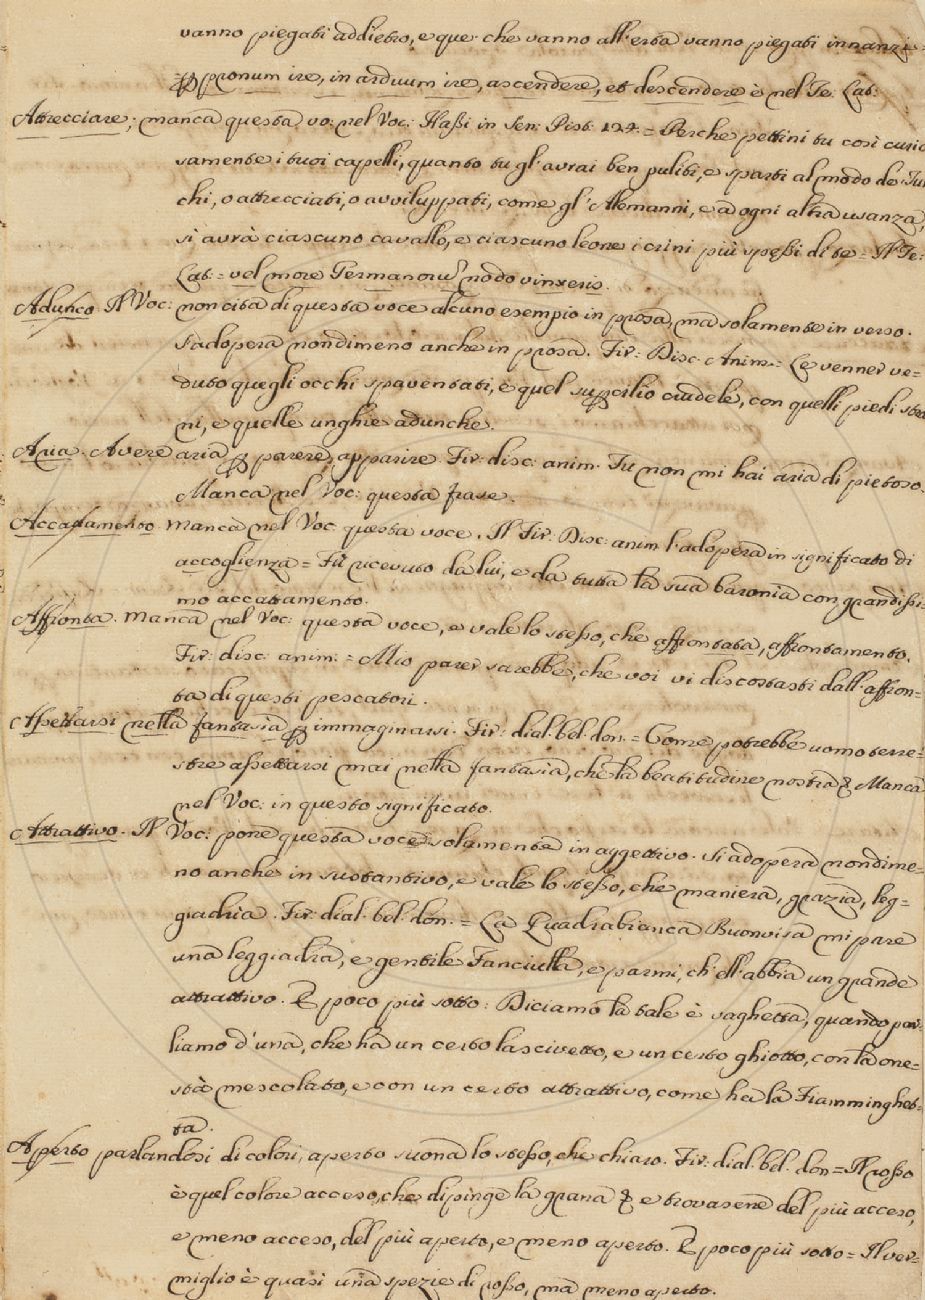 vanno piegati addietro, e que' che vanno all'erta vanno piegati innanzi =
ꝑ pronum ire, in arduum ire, ascendere, et descendere è nel Te: Lat:
Attrecciare; manca questa vo: nel Voc: Hassi in Sen: Pist: 124. = Perche pettini tu così curio
samente i tuoi capelli, quanto tu gl'avrai ben puliti, e sparti al modo de Tur
chi, o attrecciati, o avviluppati, come gl'Alemanni, e ad ogni altra usanza,
si avrà ciascuno cavallo, e ciascuno leone i crini più spessi di te = Il Te:
Lat: = vel more Germanoru nodo vinxeris.
Adunco. Il Voc: non cita di questa voce alcuno esempio in prosa, ma solamente in verso.
S'adopera nondimeno anche in prosa. Fir: Disc: Anim: = Le venner ve=
duto quegli occhi spaventati, e quel suꝑcilio crudele, con quelli piedi stra
ni, e quelle unghie adunche.
Aria. Avere aria ꝑ parere, apparire. Fir: disc: anim. Tu non mi hai aria di pietoso.
Manca nel Voc: questa frase.
Accattamento. Manca nel Voc: questa voce. Il Fir: Disc: anim l'adopera in significato di
accoglienza = Fù ricevuto da lui, e da tutta la sua baronia con grandissi=
mo accattamento.
Affronta. Manca nel Voc: questa voce, e vale lo stesso, che affrontata, affrontamento.
Fir: disc: anim: = Mio parer sarebbe, che voi vi discostasti dall'affron=
ta di questi pescatori.
Assettarsi nella fantasia ꝑ immaginarsi. Fir: dial. bel. don: = Come potrebbe uomo terre=
stre assettarsi mai nella fantasia, che la beatitudine nostra & Manca
nel Voc: in questo significato.
Attrattivo. Il Voc: pone questa voce solamente in aggettivo. Si adopera nondime=
no anche in sustantivo, e vale lo stesso, che maniera, grazia, leg=
giadria. Fir: dial. bel. don. = La Quadrabianca Buonvisa mi pare
una leggiadra, e gentile Fanciulla, e parmi, ch'ell'abbia un grande
attrattivo. E poco più sotto: Diciamo la tale è vaghetta, quando par=
liamo d'una, che ha un certo lascivetto, e un certo ghiotto, con la one=
stà mescolato, e con un certo attrattivo, come ha la Fiamminghet=
ta.
Aperto parlandosi di colori, aperto suona lo stesso, che chiaro. Fir: dial. bel. don = Il rosso
è quel colore acceso, che dipinge la grana & e trovasene del più acceso,
e meno acceso, del più aperto, e meno aperto. E poco più sotto = Il ver=
miglio è quasi una spezie di rosso, ma meno aperto.